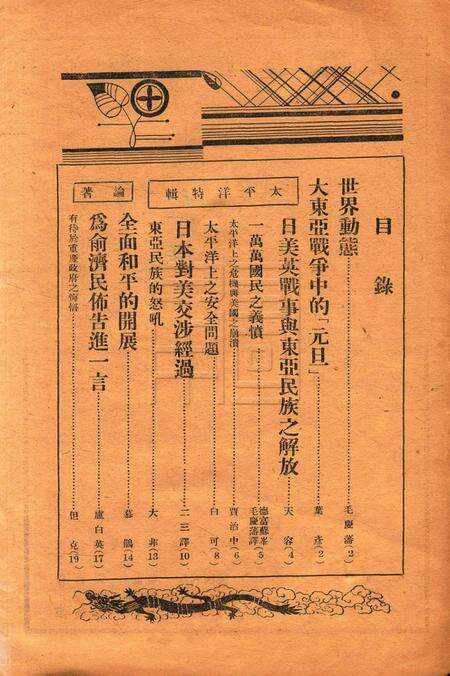 目錄
世界動態……毛慶藩(2)
大東亞戰爭中的「元旦」……葉彥(2)
太平洋特輯
日美英戰事與東亞民族之解放……天容(4)
一萬萬國民之義憤……德富蘇峯 毛慶藩譯(5)
太平洋上之危機與美國之崩潰……賈治中(6)
太平洋上之安全問題……白可(8)
日本對美交涉經過……二三譯(10)
東亞民族的怒吼……大非(13)
論著
全面和平的開展……慕鵑(14)
爲俞濟民佈告進一言……盧白英(17)
有待於重慶政府之悔悟……但克(19)